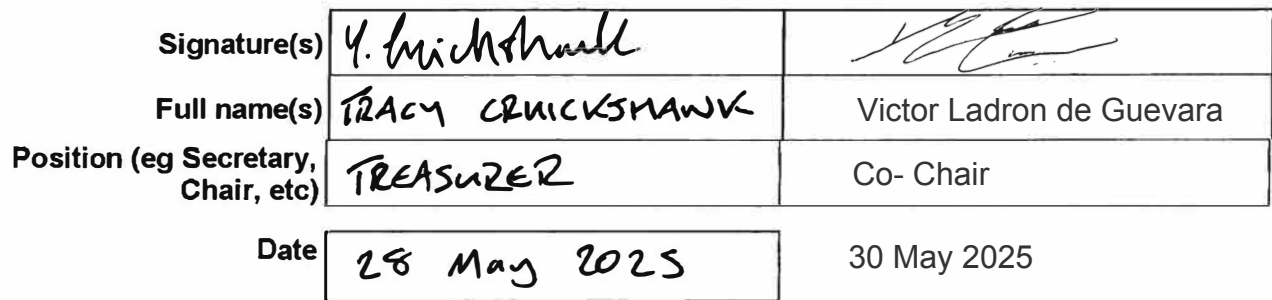 Signature(s)
Full name(s) TRACY CRUICKSHANK Victor Ladron de Guevara
Position (eg Secretary, Chair, etc) TREASURER Co- Chair
Date 28 May 2025 30 May 2025